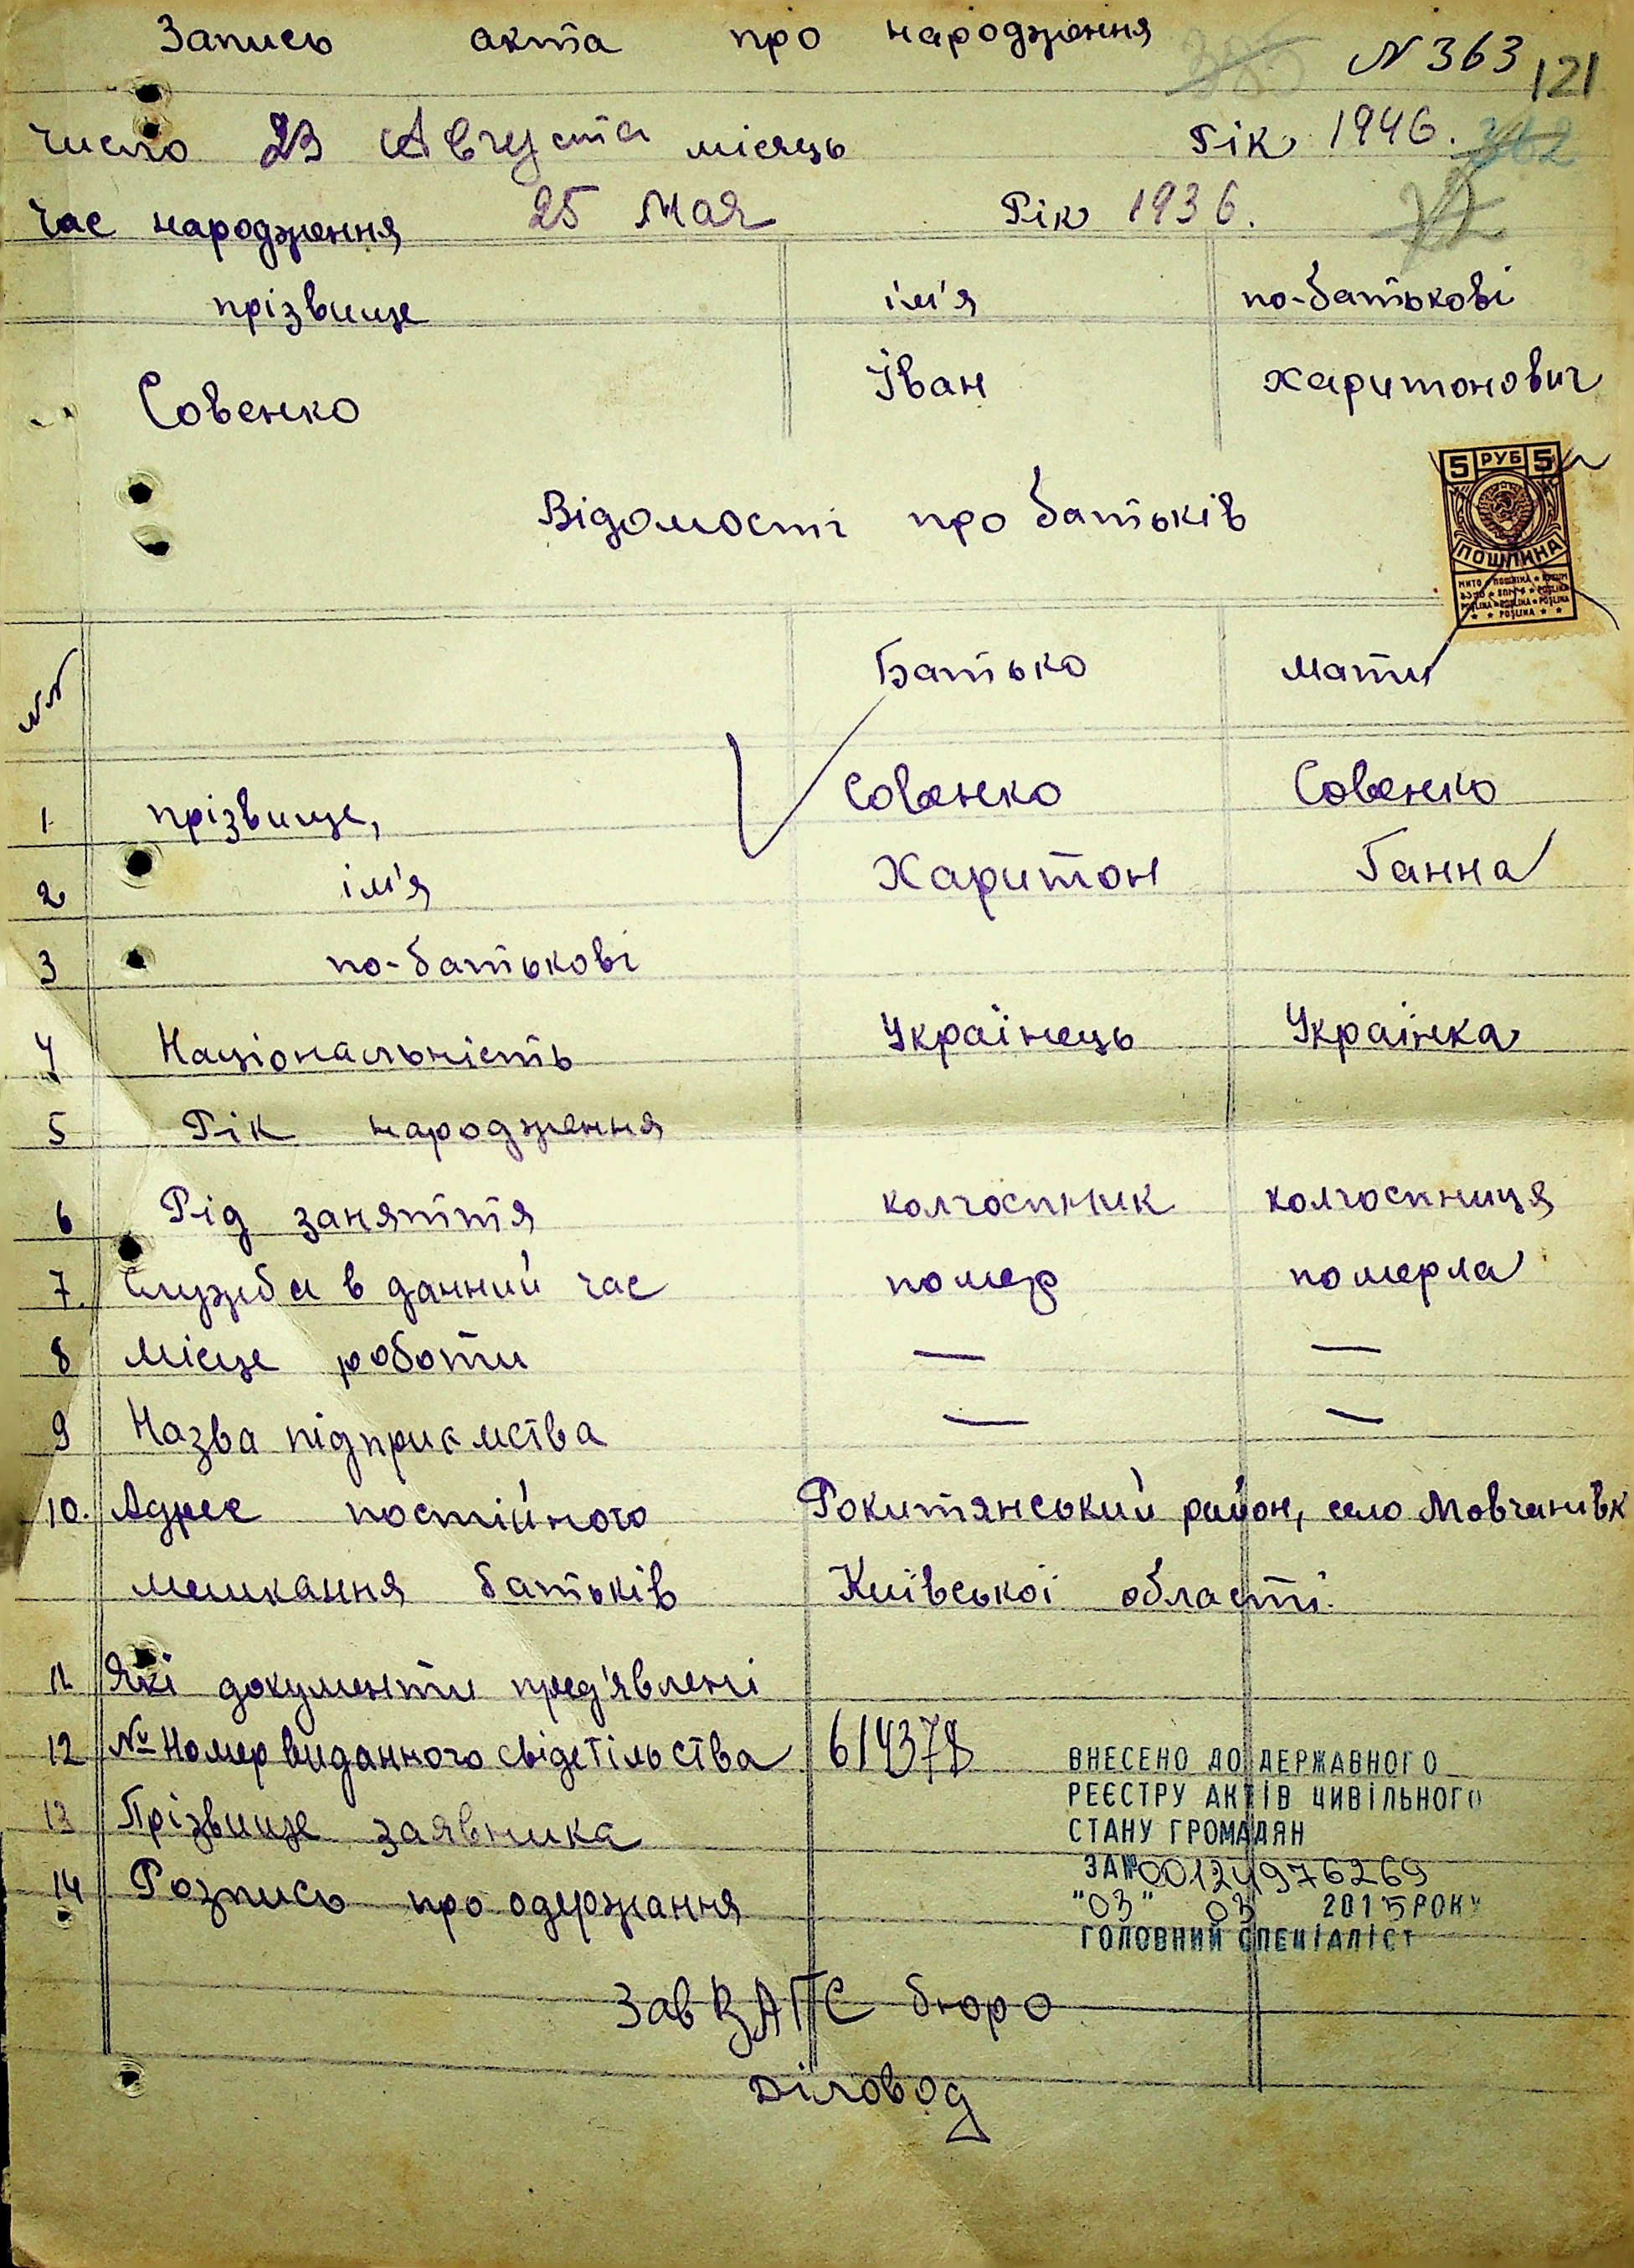 Запись акта про народження N 363
121
число 23 Августа місяць Рік 1946. 362
час народження 25 Мая Рік 1936.
прізвище ім'я по-батькові
Совенко Іван Харитонович
5 РУБ 5
ПОШЛИНА
Відомості про батьків
NN Батько Мати
1. прізвище, Совенко Совенко
2 ім'я Харитон Ганна
3 по-батькові
4 Національність Українець Українка
5 Рік народження
6 Рід заняття колгоспник колгоспниця
7. Служба в данний час помер померла
8 Місце роботи — —
9 Назва підприємства — —
10. Адрес постійного Рокитянський район, село Мовчанивк
мешкання батьків Київської області.
11 Які документи пред'явлені
12 № Номер виданного свідетільства 614378
13 Прізвище заявника
14 Розпись про одержання
ВНЕСЕНО ДО ДЕРЖАВНОГО
РЕЄСТРУ АКТІВ ЦИВІЛЬНОГО
СТАНУ ГРОМАДЯН
ЗА № 00124976269
"03" 03 2015 РОКУ
ГОЛОВНИЙ СПЕЦІАЛІСТ
Зав ЗАГС бюро
Діловод